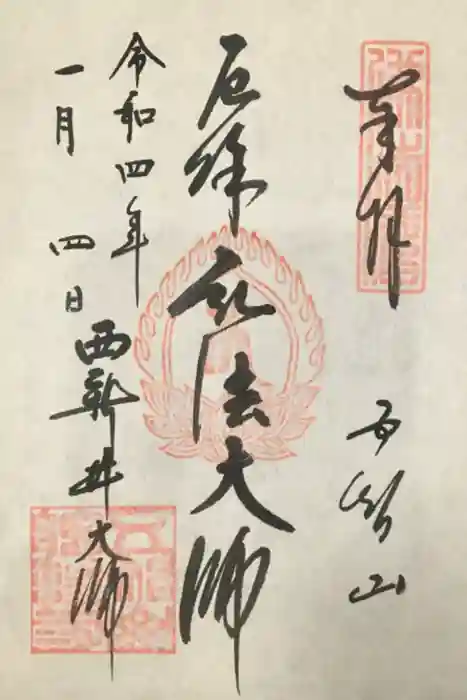 奉拝
五智山
厄除 弘法大師
令和四年
一月 四日
西新井大師